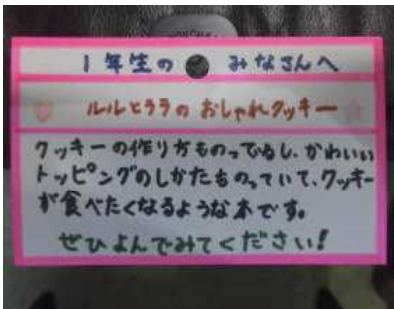 1年生の みなさんへ
ルルとララの おしゃれクッキー
クッキーの作り方ものってるし、かわいい
トッピングのしかたものっていて、クッキー
が食べたくなるような本です。
ぜひよんでみてください!